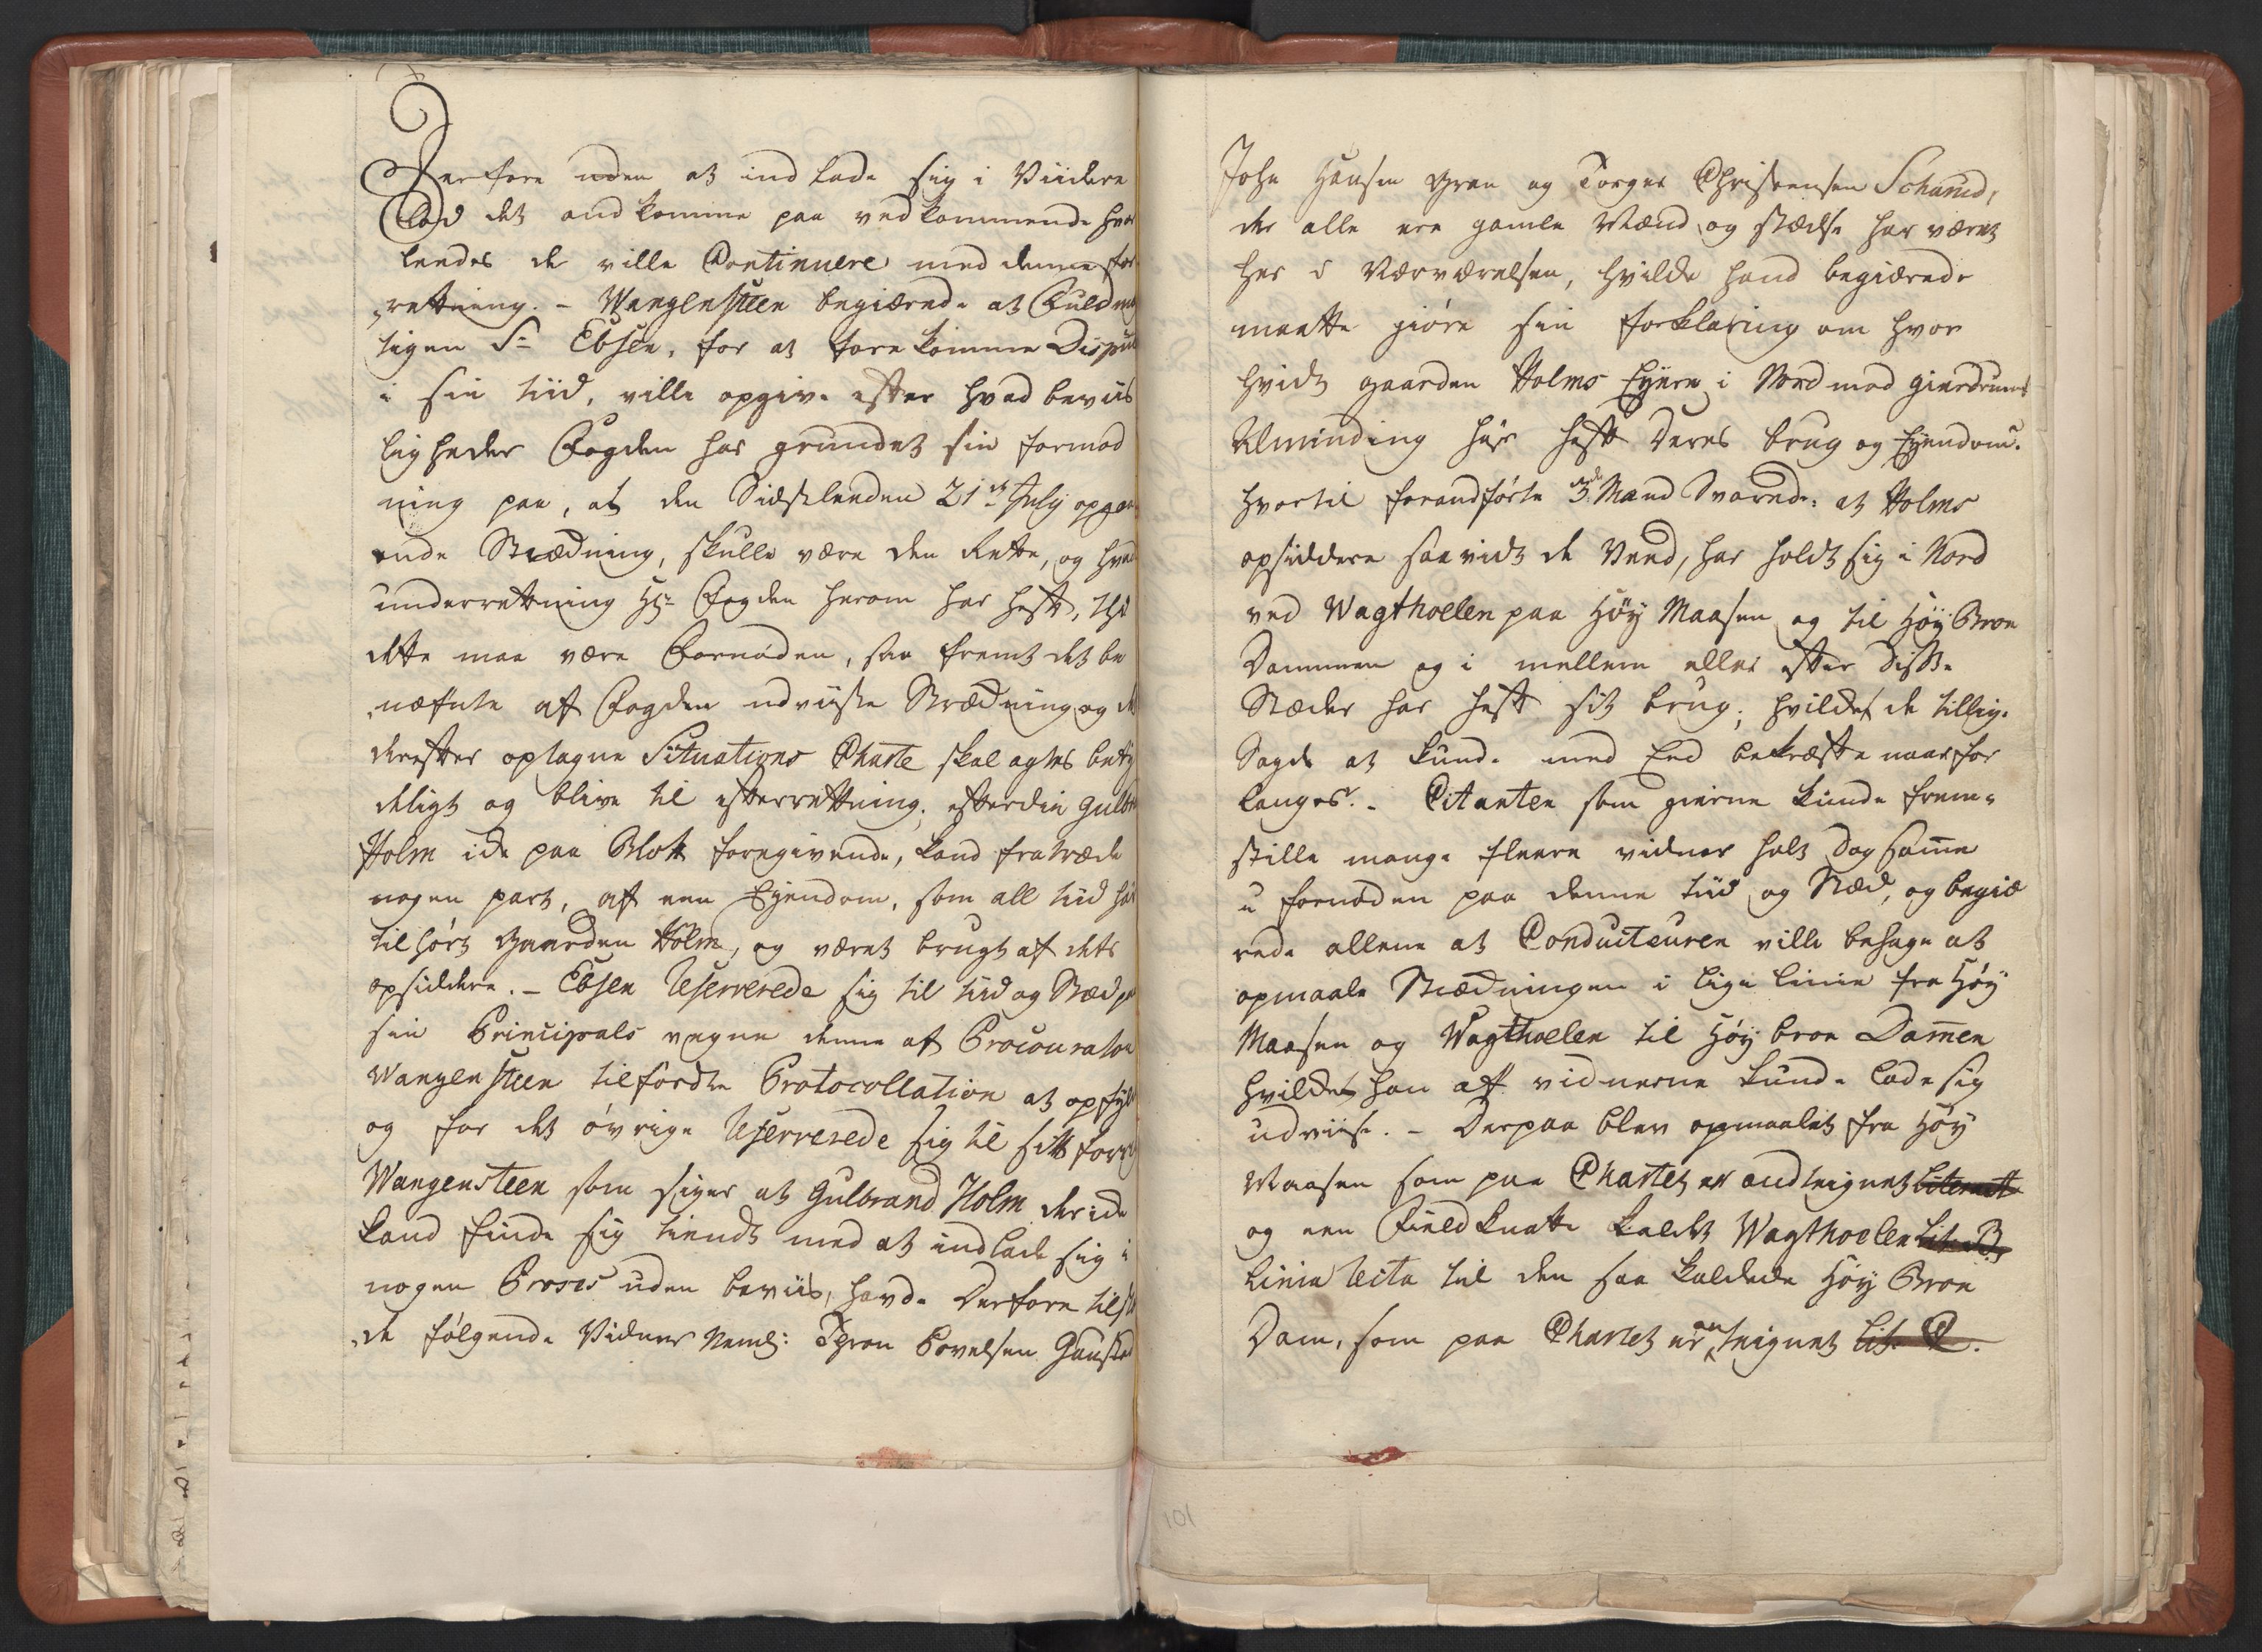 Derfore uden at ind lade sig i Viidere
Lod det and komme paa vedkommende hvor
leedes de ville Continuere med denne for
rettning. - Wangensteen begiærede at Fuldmæg
tigen Sr Ebsen, for at fore komme Disput
i sin tiid, ville opgive efter hvad beviis
ligheder Fogden har grundet sin formod
ning paa, at den Sidstleeden 21de July opgan
ende Strædning, skulle være den Rette, og hvad
underrettning Hr Fogden herom har haft, thi
dette maa være Fornøden, saa fremt det be
næfnte af Fogden udviiste Strædning og d
derefter optagne Situations Charte skal agtes betÿ
deligt og blive til efterrettning, efterdi Gulbr
Holm icke paa Blott foregivende, kand fratræde
nogen part, af een Eyendom, som all tiid ha
tilhørt Gaarden Holm, og været brugt af dets
opsiddere. - Ebsen Reserverede sig til tiid og Stæd paa
sin Principals vegne denne af Procurator
Wangensteen tilførdte Protocollation at opfÿl
og for det øvrige Reserverede sig til sitt forr
Wangensteen som siger at Gulbrand Holm der icke
kand finde sig tiendt med at indlade sig i
nogen Proces uden beviis, havde Derfore tilst
de følgende Vidner Neml: Gaust
John Hansen Gran og Torger Christensen
der alle ere gamle Mænd og stædse har været
her i Nærværelsen, hvilcke hand begiærede
maatte giøre sin forklaring om hvor
hvidt gaarden Holms Eÿere i Nord mod Gierdrums
Alminding har haft Deres brug og Eÿendom.
hvortil forandførte 3de Mænd Svarede: at Holms
opsiddere saa vidt de Veed, har holdt sig i Nord
ved Wagthoelen paa Høÿ Maasen og til Høÿ Broe
Dammen og i mellem eller efter disse
Stæder har haft sit brug; hvilcket de tillige
Sagde at kunde med Eed bekræfte naar for
langes. - Citanten som gierne kunde frem-
stille mange fleere vidner holt dog samme
u fornøden paa denne tiid og Stæd, og begiæ
rede allene at Conducteuren ville behage at
opmaale Strædningen i lige linie fra Høÿ
Maasen og Wagthoelen til Høÿ broe Dammen
hvilcket han af vidnerne kunde lade sig
udviise. - Derpaa blev opmaalet fra Høÿ
Maasen som paa Chartet er andteignet
og een Fieldknatte kaldet Wagthoelen Lit: B,
Linia Recta til den saa kaldede Høÿ Broe
Dam, som paa Chartet er anteignet Lit: C.
101